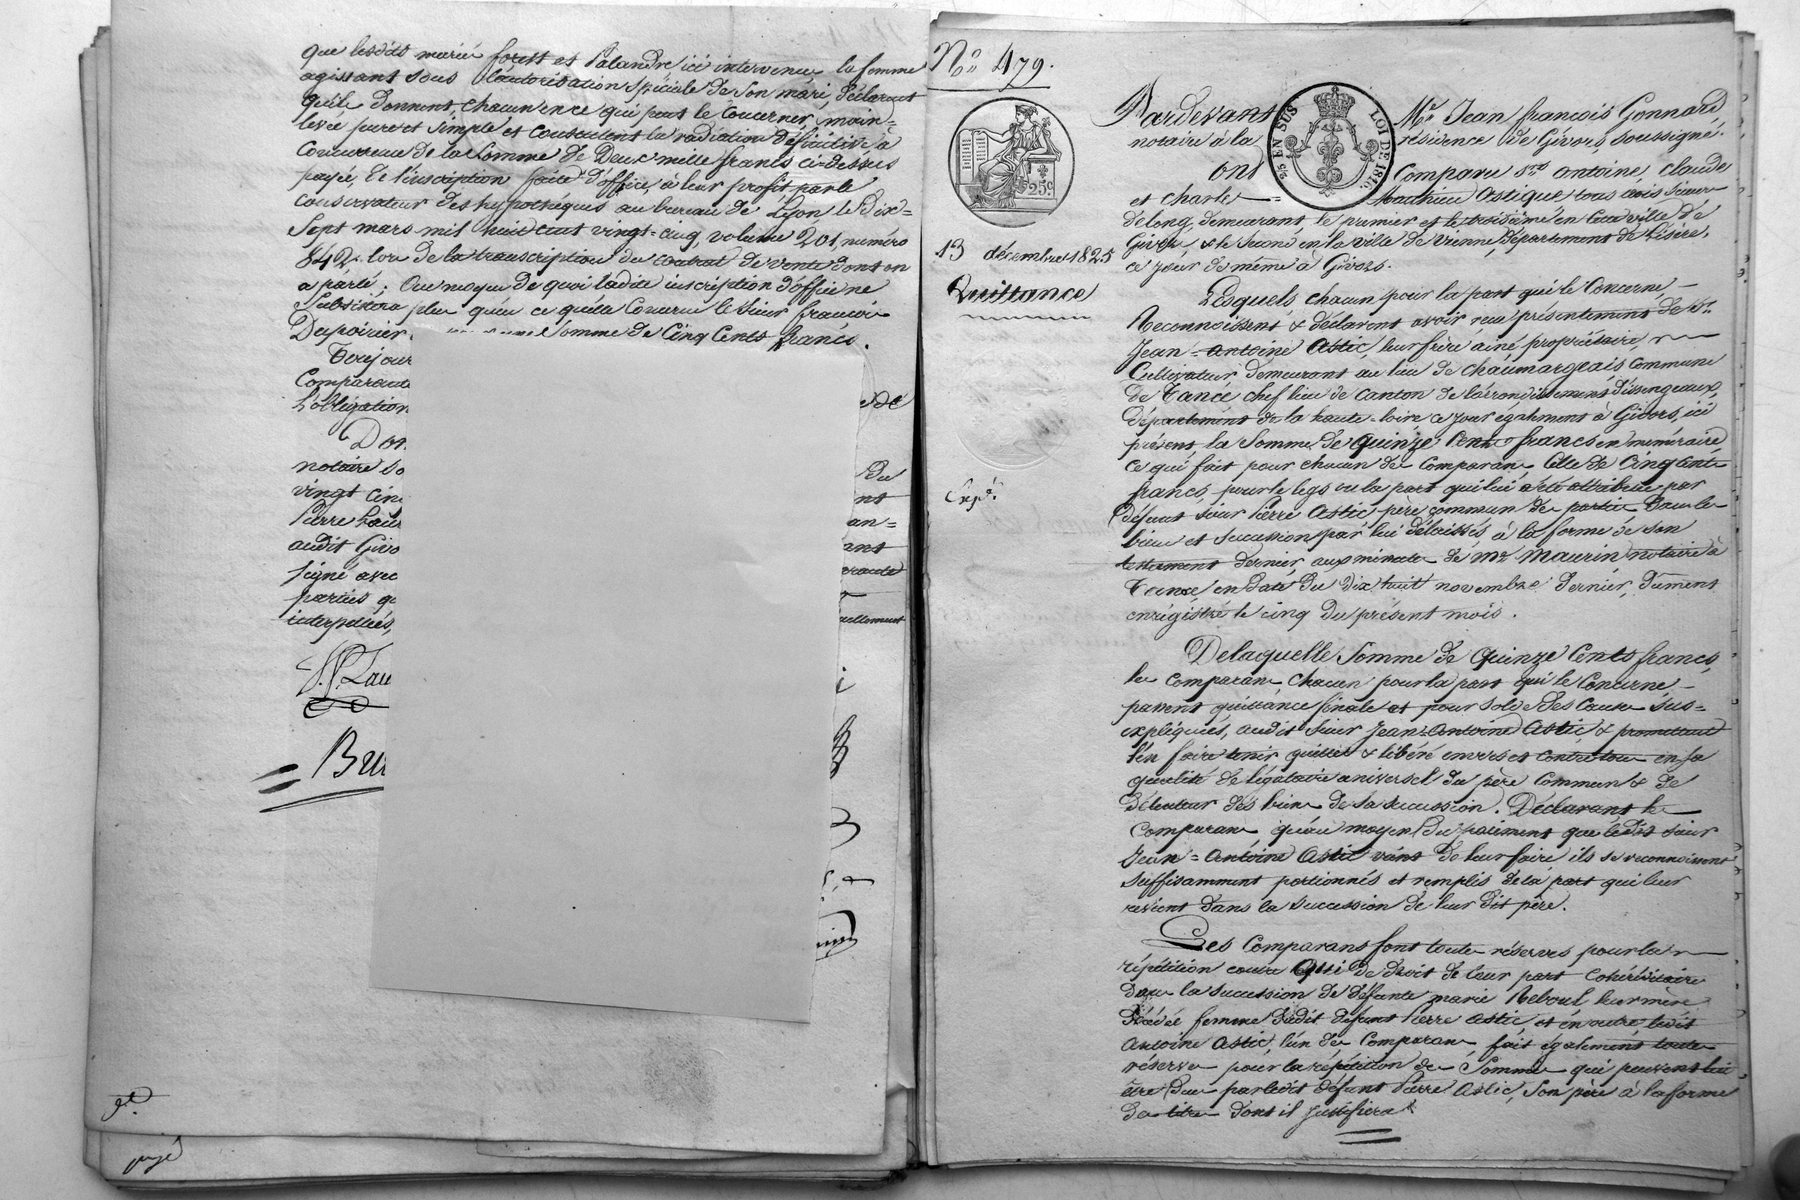 que lesdits mariés forest et Palandre ici intervenu la femme
agissant sous l'autorisation spéciale de son mari, déclarent
qu'ils donnent chacun en ce qui peut le concerner, main=
levée pure et simple et consentent la radiation définitive à
concurrence de la somme de Deux mille francs ci-dessus
payée, de l'inscription faite d'office, à leur profit par le
conservateur des hypothèques au bureau de Lyon le dix=
Sept mars mil huit cent vingt-cinq, volume 201, numéro
842, lors de la transcription du contrat de vente dont on
a parlé ; Au moyen de quoi ladite inscription d'office ne
subsistera plus qu'en ce qu'elle concerne le sieur francois
somme de Cinq Cents francs.
comparants
l'obligation
de
Du
notaire so
vingt cinq
nt
Pierre Laur
an=
audit Givo
ants
signé avec
parties q
interpellées,
uellement
J. P. Lau
Bru
N° 479.
Pardevant Me Jean francois Gonnard
notaire à la résidence de Givors, soussigné.
2 1/2 EN SUS LOI DE 1816.
25c
ont Comparu Srs antoine, claude
et charles = Mathieu Astic que tous trois sieurs
de long, demeurant le premier et le troisième en cette ville de
Givors, & le second en la ville de Vienne, département de l'isère.
ce jour de même à Givors.
13 décembre 1825
Quittance
Lesquels chacun pour la part qui le Concerne, –
Reconnoissent & déclarent avoir reçu présentement de Sr
Jean-Antoine Astic, leur frère ainé, propriétaire,
Cultivateur demeurant au lieu de chaumargeais, commune
de Tance, chef lieu de canton de l'arrondissement d'issengeaux,
département de la haute-loire ce jour également à Givors, ici
présent, la Somme de quinze Cents francs en numéraire
ce qui fait pour chacun des comparans celle de Cinq cents
francs, pour le legs ou la part qui lui a été attribuée par
Expé.
défunt sieur Pierre Astic père commun des parties dans les
biens et succession par lui délaissés, à la forme de son
testament dernier, aux minutes de Mr Maurin notaire à
Tance, en date du Dix huit novembre dernier, dûment
enrégistré le cinq du présent mois.
Delaquelle Somme de quinze Cents francs,
les comparans, chacun pour la part qui le Concerne, –
passent quittance finale et pour solde des causes sus=
expliquées, audit sieur Jean-Antoine Astic & promettent
l'en faire tenir quitte & libéré envers et contre tous en sa
qualité de légataire universel du père commun & de
détenteur des biens de sa succession. Déclarant les
comparans qu'au moyen du paiement que ledit sieur
Jean=Antoine Astic vient de leur faire ils se reconnoissent
suffisamment portionnés et remplis de la part qui leur
revient dans la succession de leur dit père.
Les Comparans font toutes réserves pour la
répétition contre Qui de droit de leur part cohéréditaire
dans la succession de défunte marie Reboul leur mère
décédée femme dudit défunt Pierre Astic, et en outre, ledit
Antoine Astic, l'un des Comparans, fait également toutes
réserves pour la répétition des Sommes qui peuvent lui
être dues par ledit défunt Pierre Astic, Son père à la forme
des titres dont il Justifiera.